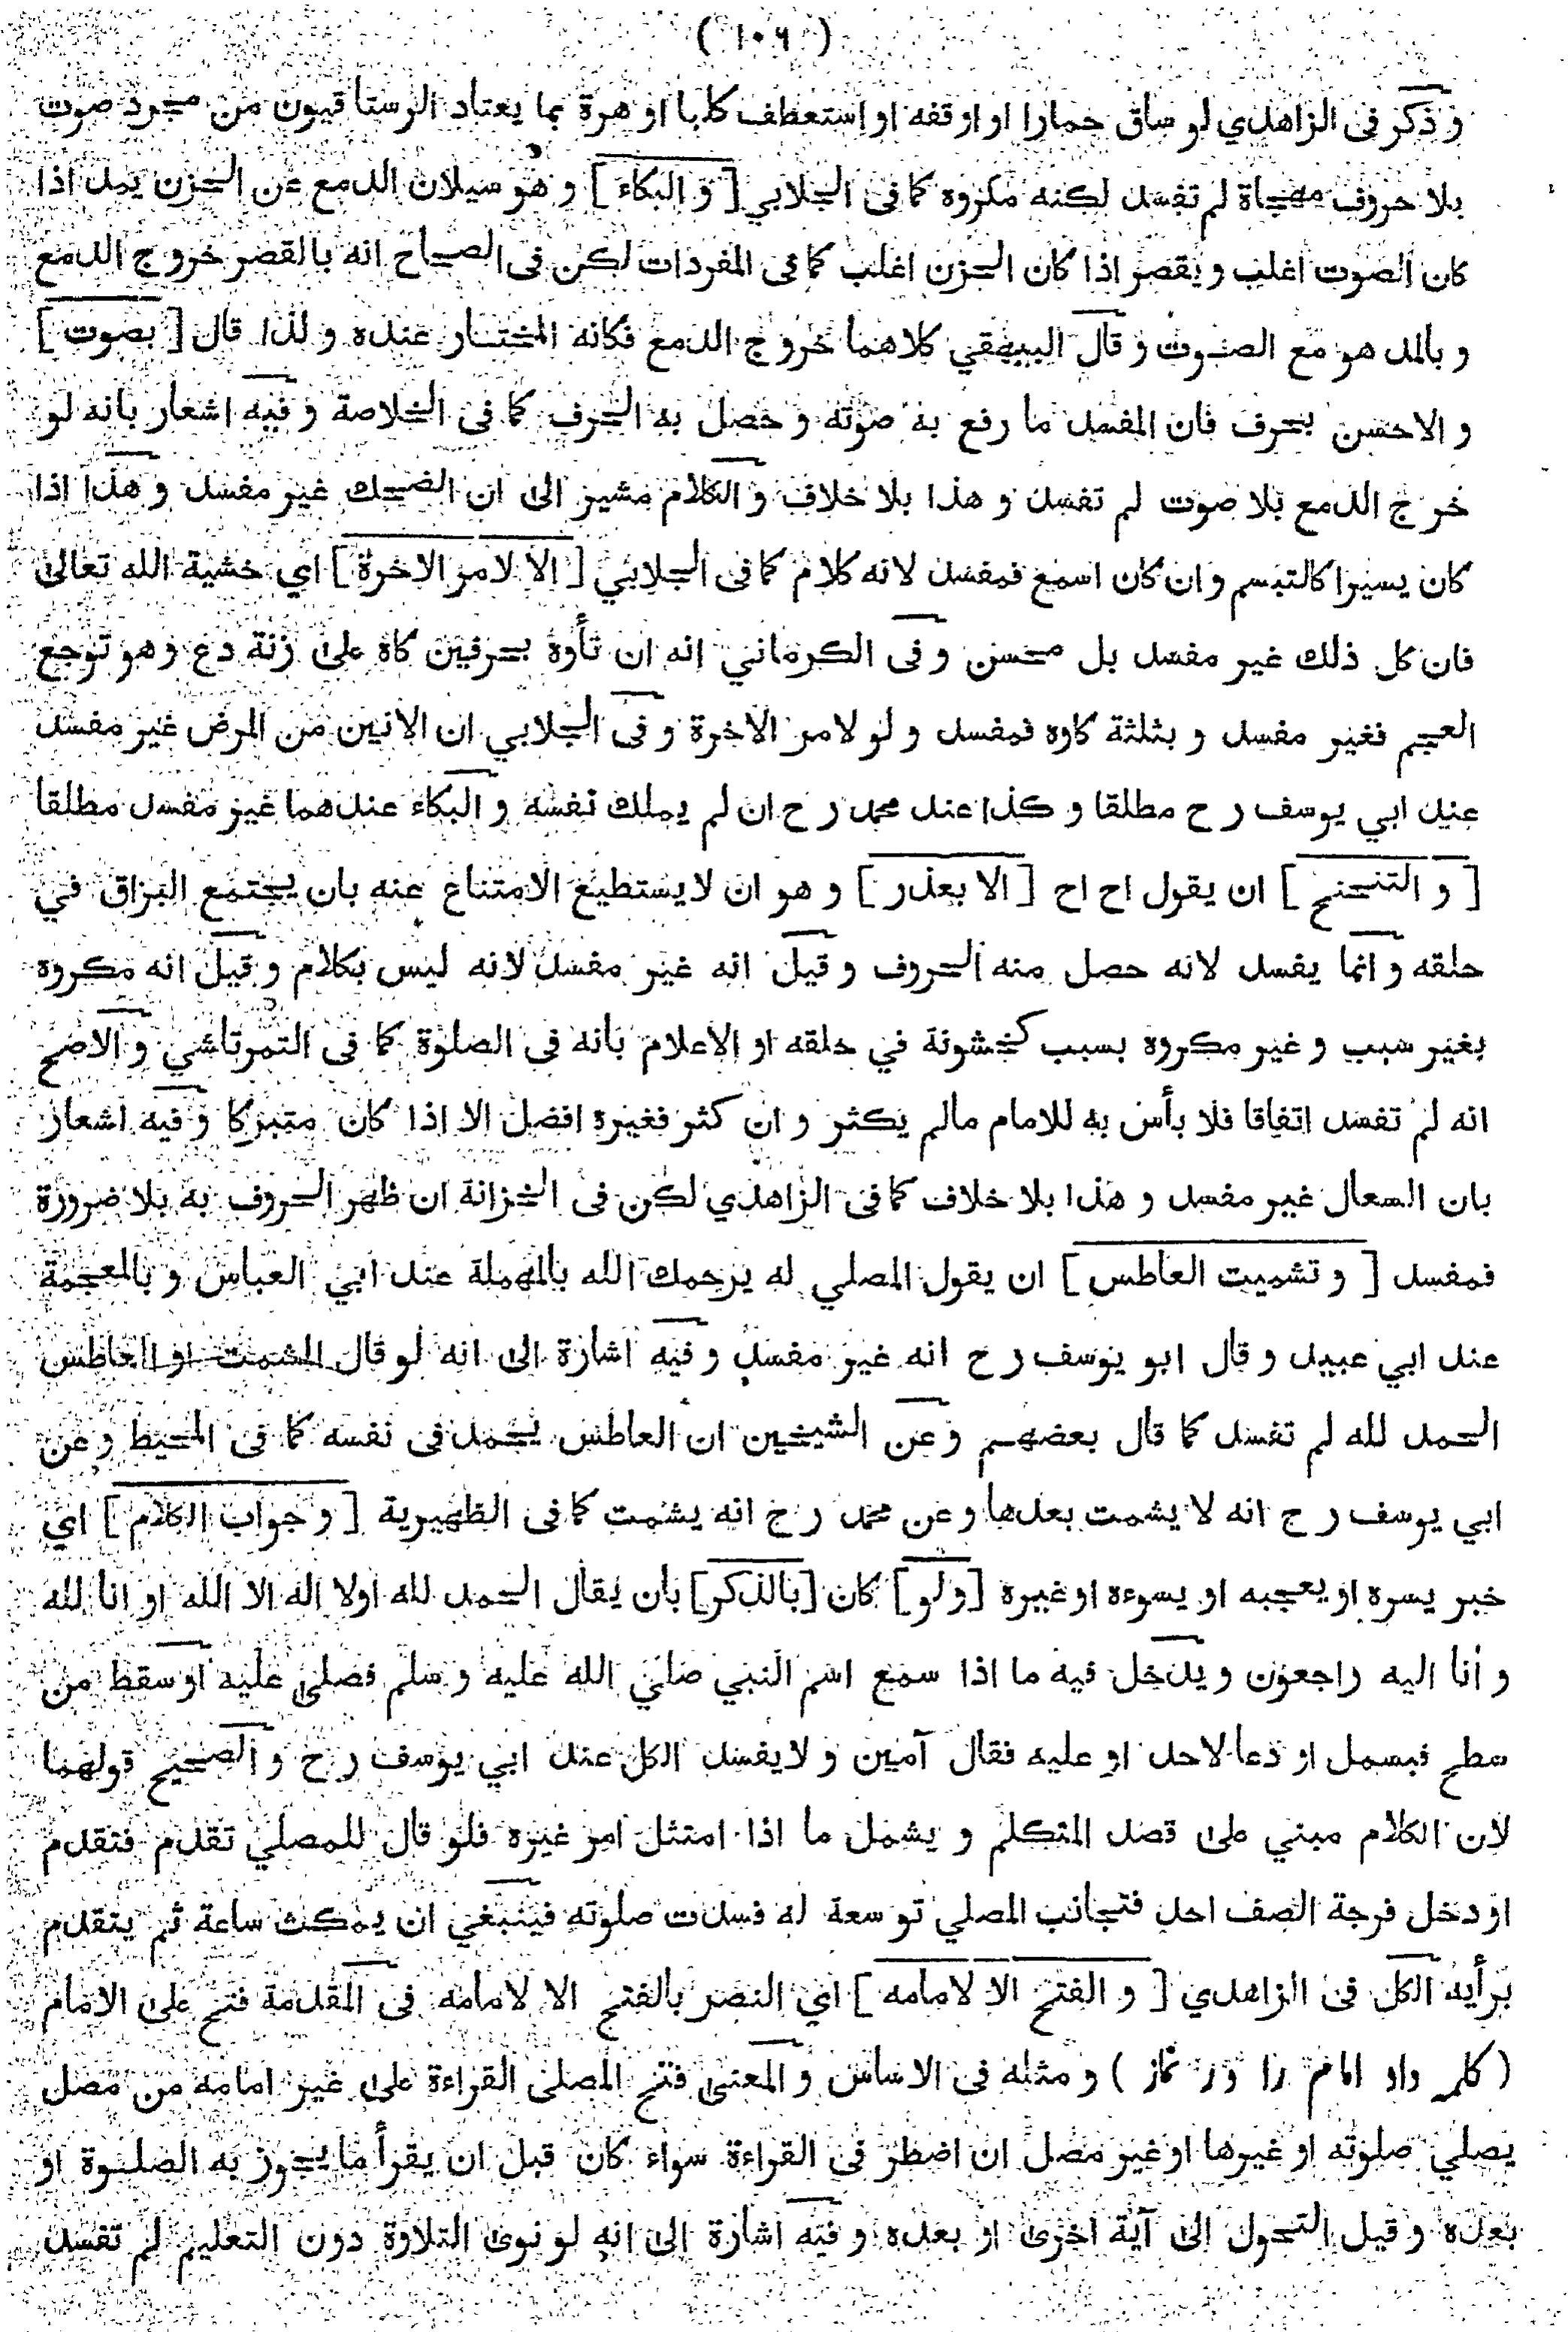 ( ١٠٦ )
و ذكر فى الزاهدي لو ساق حمارا او اوقفه او استعطف كلبا او هرة بما يعتاد الرستا قيون من مجرد صوت
بلا حروف مهجاة لم تفسد لكنه مكروه كما فى الجلابي [ و البكاء ] و هو سيلان الدمع عن الحزن يمد اذا
كان الصوت اغلب و يقصر اذا كان الحزن اغلب كما فى المفردات لكن فى الصحاح انه بالقصر خروج الدمع
و بالمد هو مع الصوت و قال البيهقي كلاهما خروج الدمع فكانه المختار عنده و لذا قال [ بصوت ]
و الاحسن بحرف فان المفسد ما رفع به صوته و حصل به الحرف كما فى الخلاصة و فيه اشعار بانه لو
خرج الدمع بلا صوت لم تفسد و هذا بلا خلاف و الكلام مشير الى ان الضحك غير مفسد و هذا اذا
كان يسيرا كالتبسم و ان كان اسمع فمفسد لانه كلام كما فى الجلابي [ الا لامر الاخرة ] اي خشية الله تعالى
فان كل ذلك غير مفسد بل محسن و فى الكرماني انه ان تأوه بحرفين كاه على زنة دع و هو توجع
العجم فغير مفسد و بثلثة كاوه فمفسد و لو لامر الاخرة و فى الجلابي ان الانين من المرض غير مفسد
عند ابي يوسف ر ح مطلقا و كذا عند محمد ر ح ان لم يملك نفسه و البكاء عندهما غير مفسد مطلقا
[ و التنحنح ] ان يقول اح اح [ الا بعذر ] و هو ان لا يستطيع الامتناع عنه بان يجتمع البزاق في
حلقه و انما يفسد لانه حصل منه الحروف و قيل انه غير مفسد لانه ليس بكلام و قيل انه مكروه
بغير سبب و غير مكروه بسبب كخشونة في حلقه او الاعلام بانه فى الصلوة كما فى التمرتاشي و الاصح
انه لم تفسد اتفاقا فلا بأس به للامام مالم يكثر و ان كثر فغيره افضل الا اذا كان متبركا و فيه اشعار
بان السعال غير مفسد و هذا بلا خلاف كما فى الزاهدي لكن فى الخزانة ان ظهر الحروف به بلا ضرورة
فمفسد [ و تشميت العاطس ] ان يقول المصلي له يرحمك الله بالمهملة عند ابي العباس و بالمعجمة
عند ابي عبيد و قال ابو يوسف ر ح انه غير مفسد و فيه اشارة الى انه لو قال المشمت او العاطس
الحمد لله لم تفسد كما قال بعضهم و عن الشيخين ان العاطس يحمد فى نفسه كما فى المحيط و عن
ابي يوسف ر ح انه لا يشمت بعدها و عن محمد ر ح انه يشمت كما فى الظهيرية [ و جواب الكلام ] اي
خبر يسره او يعجبه او يسوءه او غيره [ و لو ] كان [ بالذكر ] بان يقال الحمد لله اولا اله الا الله او انا لله
و انا اليه راجعون و يدخل فيه ما اذا سمع اسم النبي صلى الله عليه و سلم فصلى عليه او سقط من
سطح فبسمل او دعا لاحد او عليه فقال آمين و لا يفسد الكل عند ابي يوسف ر ح و الصحيح قولهما
لان الكلام مبني على قصد المتكلم و يشمل ما اذا امتثل امر غيره فلو قال للمصلي تقدم فتقدم
او دخل فرجة الصف احد فتجانب المصلي توسعة له فسدت صلوته فينبغي ان يمكث ساعة ثم يتقدم
برأيه الكل فى الزاهدي [ و الفتح الا لامامه ] اي النصر بالفتح الا لامامه فى المقدمة فتح على الامام
( كلمه داد امام را در نماز ) و مثله فى الاساس و المعنى فتح المصلى القراءة على غير امامه من مصل
يصلي صلوته او غيرها او غير مصل ان اضطر فى القراءة سواء كان قبل ان يقرأ ما يجوز به الصلوة او
بعده و قيل التحول الى آية اخرى او بعده و فيه اشارة الى انه لو نوى التلاوة دون التعليم لم تفسد